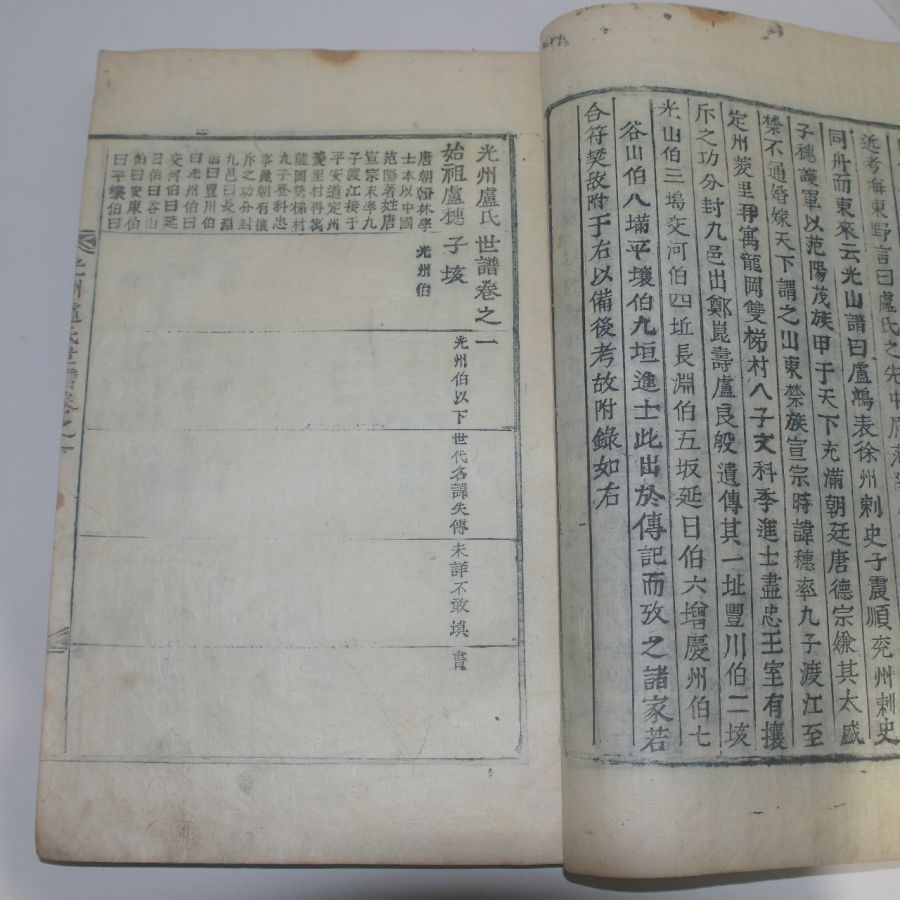 近考海東野言曰盧氏之先中原
同舟而東來云光山譜曰盧鷰表徐州刺史子震順兗州刺史
子穗護軍以范陽茂族甲于天下充滿朝廷唐德宗嫌其太盛
禁不通婚嫁天下謂之山東禁族宣宗時諱穗率九子渡江至
定州菱里再寓龍岡雙梯村八子文科季進士盡忠王室有攘
斥之功分封九邑出鄭崑壽盧良殷遺傳其一址豐川伯二垓
光山伯三塢交河伯四坵長淵伯五坂延日伯六增慶州伯七
谷山伯八塔平壤伯九垣進士此出於傳記而攷之諸家若
合符契故附于右以備後考故附錄如右
光州盧氏世譜卷之一
始祖盧穗 子垓
唐朝翰林學
士本以中國
范陽著姓唐
宣宗末擧九
子渡江接于
平安道定州
菱里村再寓
龍岡雙梯村
九子登科忠
事麗朝有攘
斥之功分封
九邑曰長淵
伯曰豐川伯
曰光州伯曰
交河伯曰延
日伯曰谷山
伯曰安康伯
曰平壤伯曰
光州伯
光州伯以下世代名諱失傳未詳不敢塡書
光州盧氏世譜卷之一